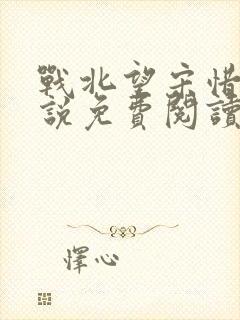 戰北望宋惜
說免費閱讀
懌心